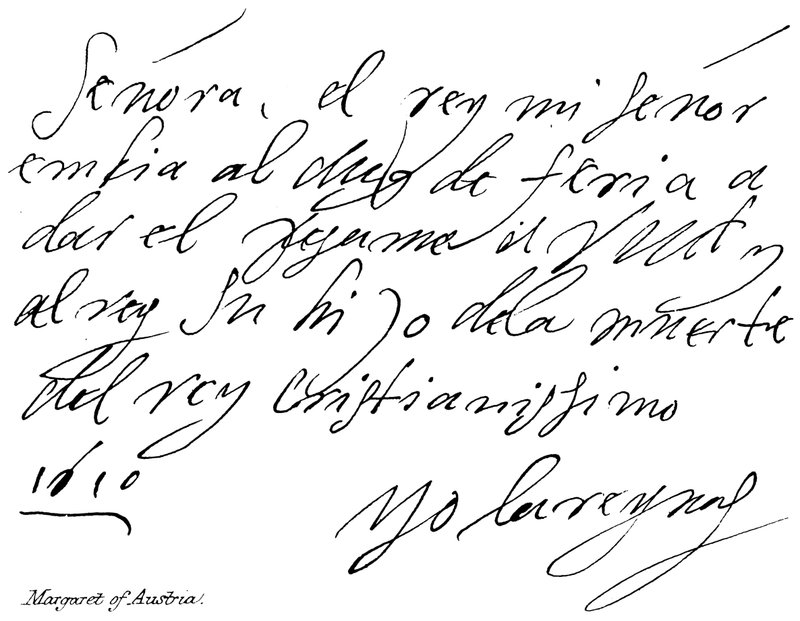 Señora, el rey mi señor
embia al duq de feria a
dar el pesame a V Mt y
al rey su hijo dela muerte
del rey cristianissimo
1610
yo la reyna
Margaret of Austria.